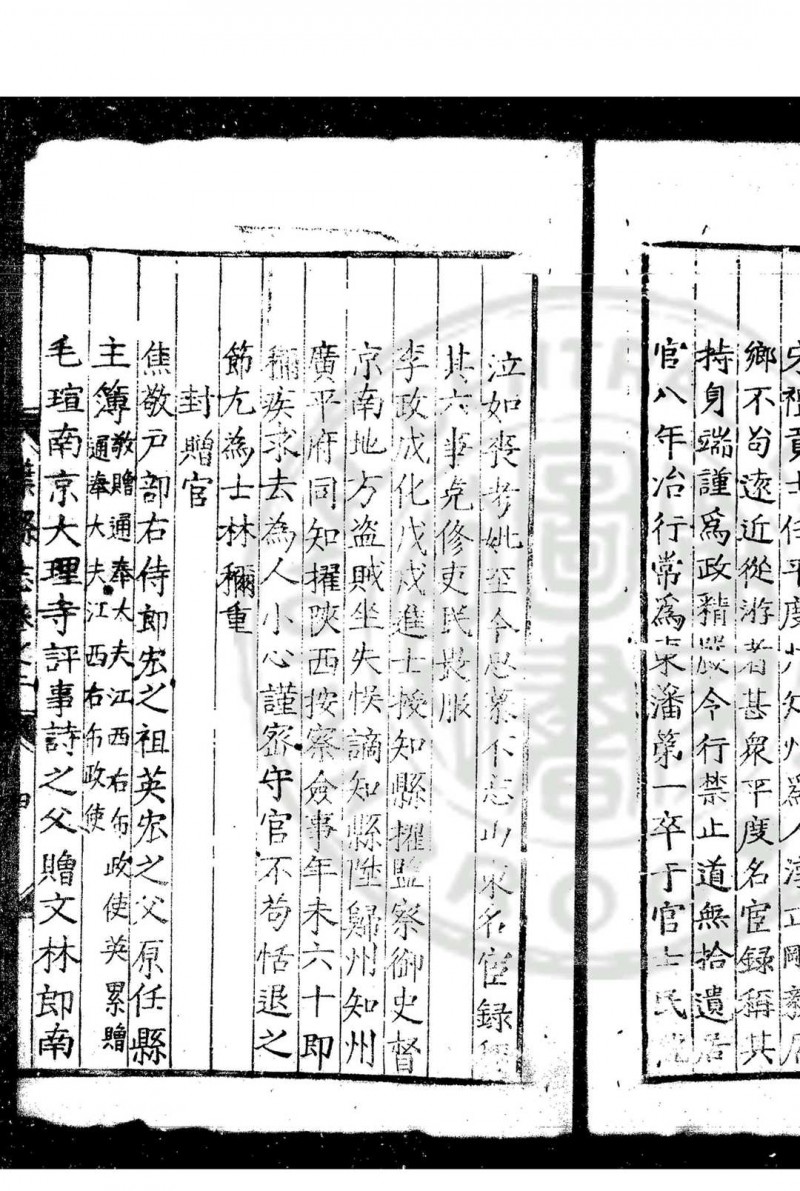 宋祖貢士任平度州知州為人淳立剛毅居
鄉不苟遠近從游者甚衆平度名宦録稱其
持身端謹爲政精嚴令行禁止道無拾遺居
官八年治行常爲東藩第一卒于官士民
泣如喪考妣至今思慕不忘山東名宦録
其六事克修吏民畏服
李政成化戊戌進士授知縣擢監察御史督
京南地方盗賊坐失悞謫知縣陞歸州知州
廣平府同知擢陝西按察僉事年未六十即
稱疾求去為人小心謹宻守官不苟恬退之
節尤為士林稱重
封贈官
焦敬戸部右侍郎宏之祖英宏之父原任縣
主簿敬贈通奉大夫江西右布政使英累贈
通奉大夫江西右布政使
毛瑄南京大理寺評事詩之父贈文林郎南
葉縣志卷之二
四